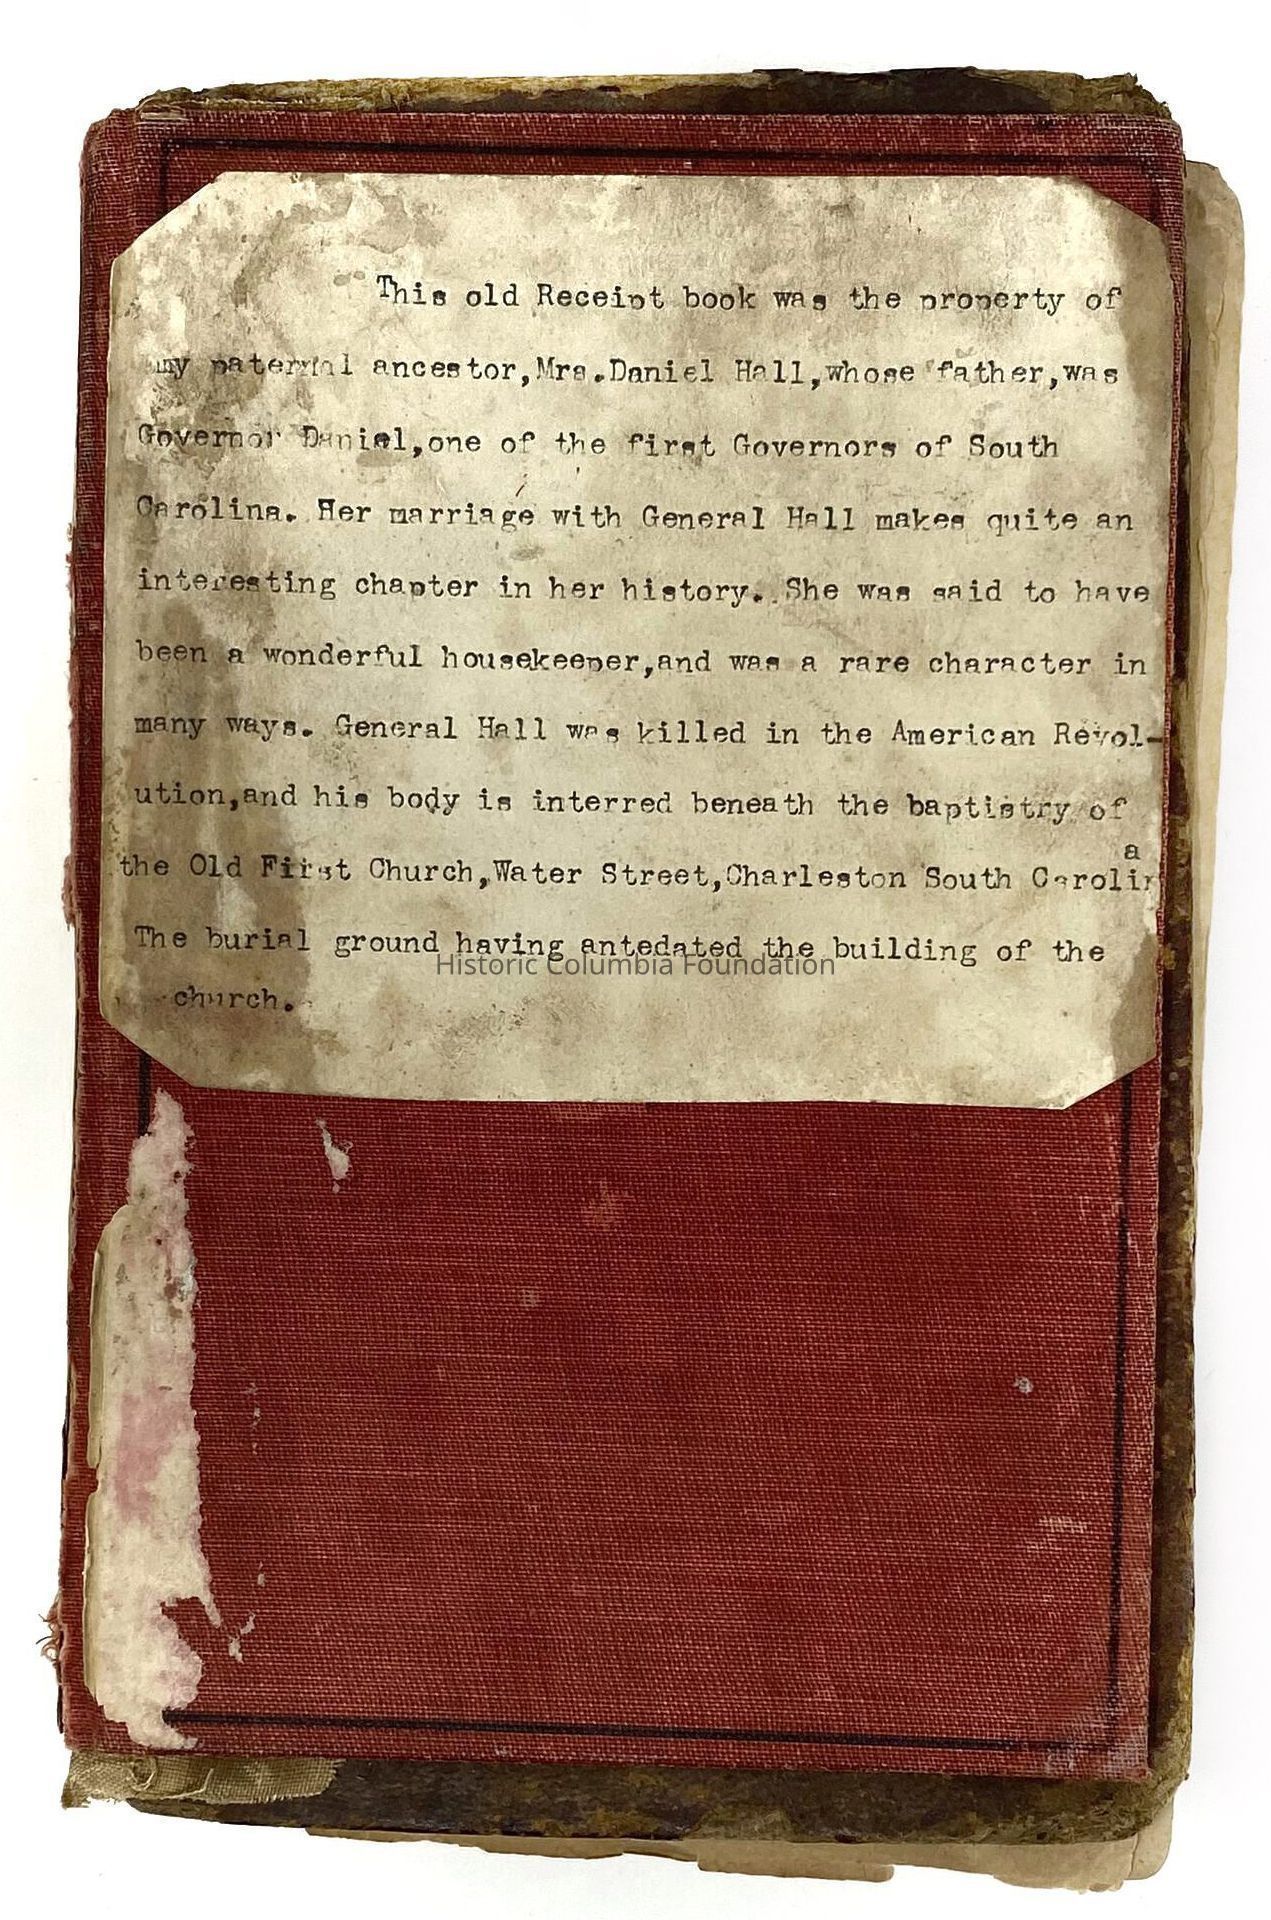 This old Receipt book was the property of
my paternal ancestor,Mrs.Daniel Hall,whose father,was
Governor Daniel,one of the first Governors of South
Carolina. Her marriage with General Hall makes quite an
interesting chapter in her history. She was said to have
been a wonderful housekeeper,and was a rare character in
many ways. General Hall was killed in the American Revol-
ution,and his body is interred beneath the baptistry of
the Old First Church,Water Street,Charleston South Carolina
The burial ground having antedated the building of the
Historic Columbia Foundation
church.